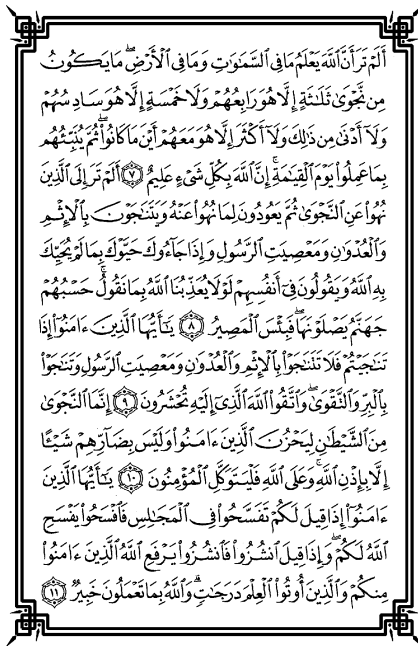 أَلَمْ تَرَ أَنَّ ٱللَّهَ يَعْلَمُ مَا فِى ٱلسَّمَـٰوَٰتِ وَمَا فِى ٱلْأَرْضِ ۖ مَا يَكُونُ
مِن نَّجْوَىٰ ثَلَـٰثَةٍ إِلَّا هُوَ رَابِعُهُمْ وَلَا خَمْسَةٍ إِلَّا هُوَ سَادِسُهُمْ
وَلَآ أَدْنَىٰ مِن ذَٰلِكَ وَلَآ أَكْثَرَ إِلَّا هُوَ مَعَهُمْ أَيْنَ مَا كَانُوا۟ ۖ ثُمَّ يُنَبِّئُهُم
بِمَا عَمِلُوا۟ يَوْمَ ٱلْقِيَـٰمَةِ ۚ إِنَّ ٱللَّهَ بِكُلِّ شَىْءٍ عَلِيمٌ ٧ أَلَمْ تَرَ إِلَى ٱلَّذِينَ
نُهُوا۟ عَنِ ٱلنَّجْوَىٰ ثُمَّ يَعُودُونَ لِمَا نُهُوا۟ عَنْهُ وَيَتَنَـٰجَوْنَ بِٱلْإِثْمِ
وَٱلْعُدْوَٰنِ وَمَعْصِيَتِ ٱلرَّسُولِ وَإِذَا جَآءُوكَ حَيَّوْكَ بِمَا لَمْ يُحَيِّكَ
بِهِ ٱللَّهُ وَيَقُولُونَ فِىٓ أَنفُسِهِمْ لَوْلَا يُعَذِّبُنَا ٱللَّهُ بِمَا نَقُولُ ۚ حَسْبُهُمْ
جَهَنَّمُ يَصْلَوْنَهَا ۖ فَبِئْسَ ٱلْمَصِيرُ ٨ يَـٰٓأَيُّهَا ٱلَّذِينَ ءَامَنُوٓا۟ إِذَا
تَنَـٰجَيْتُمْ فَلَا تَتَنَـٰجَوْا۟ بِٱلْإِثْمِ وَٱلْعُدْوَٰنِ وَمَعْصِيَتِ ٱلرَّسُولِ وَتَنَـٰجَوْا۟
بِٱلْبِرِّ وَٱلتَّقْوَىٰ ۖ وَٱتَّقُوا۟ ٱللَّهَ ٱلَّذِىٓ إِلَيْهِ تُحْشَرُونَ ٩ إِنَّمَا ٱلنَّجْوَىٰ
مِنَ ٱلشَّيْطَـٰنِ لِيَحْزُنَ ٱلَّذِينَ ءَامَنُوا۟ وَلَيْسَ بِضَآرِّهِمْ شَيْـًٔا
إِلَّا بِإِذْنِ ٱللَّهِ ۚ وَعَلَى ٱللَّهِ فَلْيَتَوَكَّلِ ٱلْمُؤْمِنُونَ ١٠ يَـٰٓأَيُّهَا ٱلَّذِينَ
ءَامَنُوٓا۟ إِذَا قِيلَ لَكُمْ تَفَسَّحُوا۟ فِى ٱلْمَجَـٰلِسِ فَٱفْسَحُوا۟ يَفْسَحِ
ٱللَّهُ لَكُمْ ۖ وَإِذَا قِيلَ ٱنشُزُوا۟ فَٱنشُزُوا۟ يَرْفَعِ ٱللَّهُ ٱلَّذِينَ ءَامَنُوا۟
مِنكُمْ وَٱلَّذِينَ أُوتُوا۟ ٱلْعِلْمَ دَرَجَـٰتٍ ۚ وَٱللَّهُ بِمَا تَعْمَلُونَ خَبِيرٌ ١١